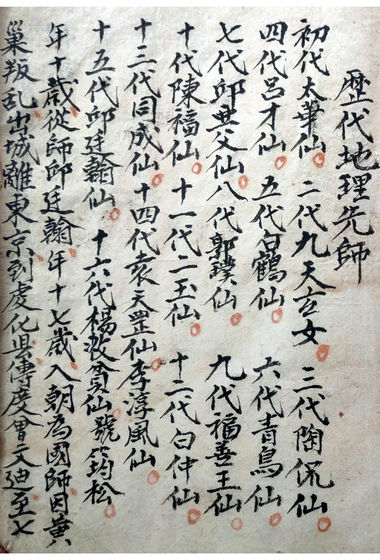 歴代地理先師
初代太華仙 二代九天玄女 三代陶侃仙
四代呂才仙 五代白鶴仙 六代青鳥仙
七代邱父仙 八代郭璞仙 九代福善王仙
十代陳福仙 十一代二玉仙 十二代白仲仙
十三代成仙 十四代袁天罡仙李淳風仙
十五代邱廷翰仙 十六代楊救貧仙號筠松
年十歲從師邱廷翰年十七歲入朝为國師因黄
巢叛乱出城離東京到虔化县傳度曾文迪至七